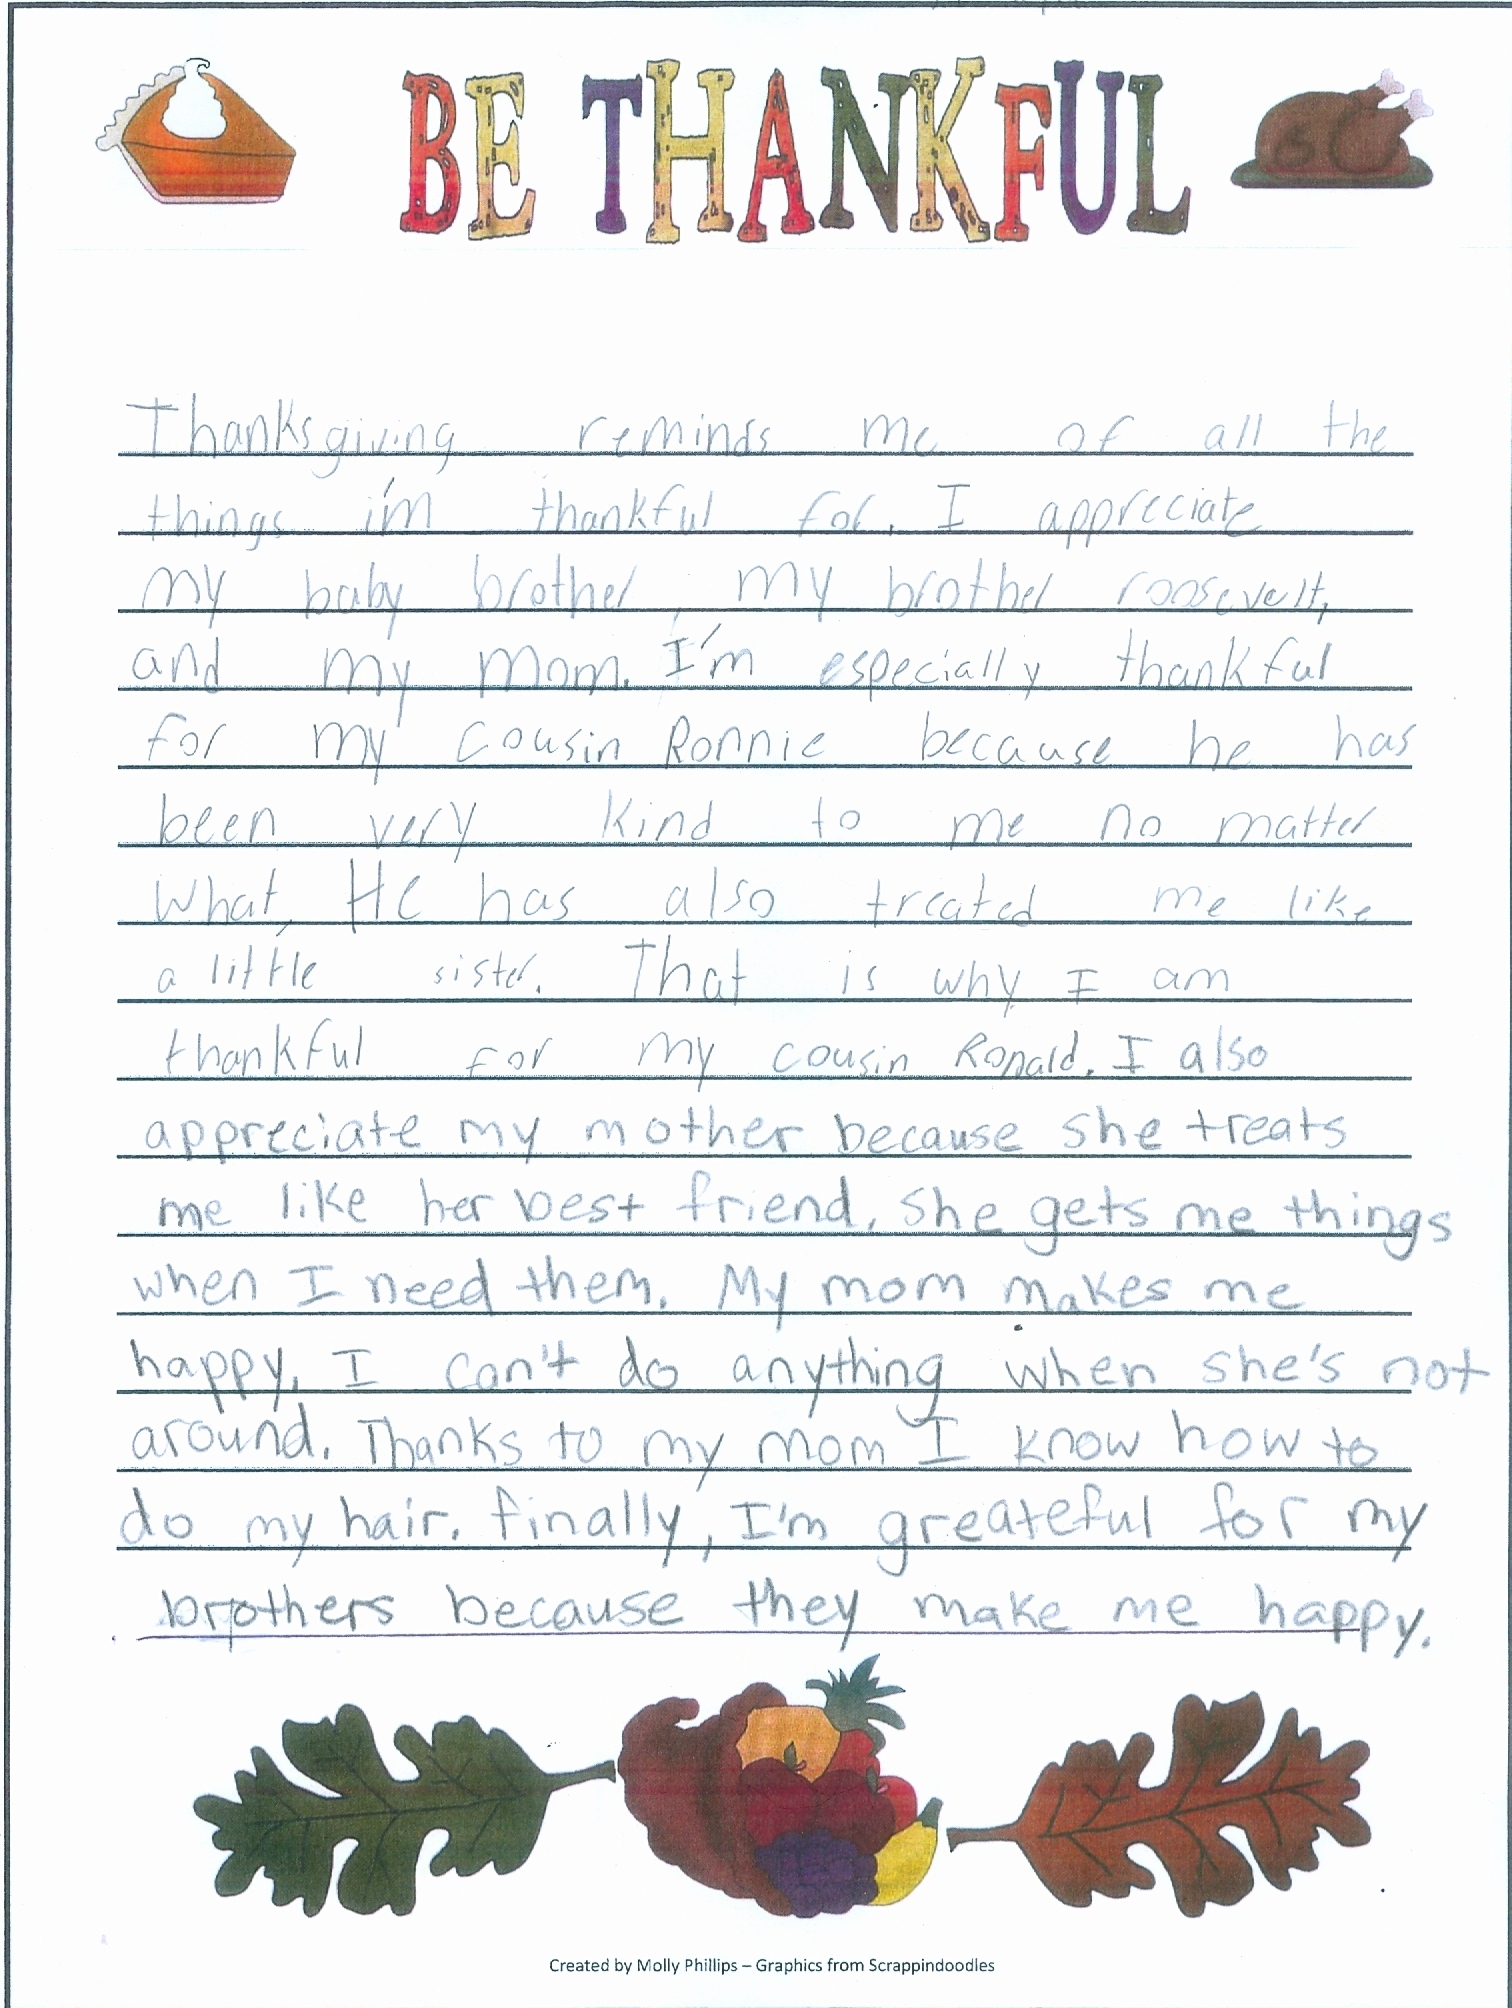 BE THANKFUL
Thanksgiving reminds me of all the
things i'm thankful for. I appreciate
my baby brother, my brother roosevelt,
and my mom. I'm especially thankful
for my cousin Ronnie because he has
been very kind to me no matter
what, He has also treated me like
a little sister. That is why I am
thankful for my cousin Ronald. I also
appreciate my mother because she treats
me like her best friend. She gets me things
when I need them. My mom makes me
happy. I can't do anything when she's not
around. Thanks to my mom I know how to
do my hair. finally, I'm greateful for my
brothers because they make me happy.
Created by Molly Phillips – Graphics from Scrappindoodles